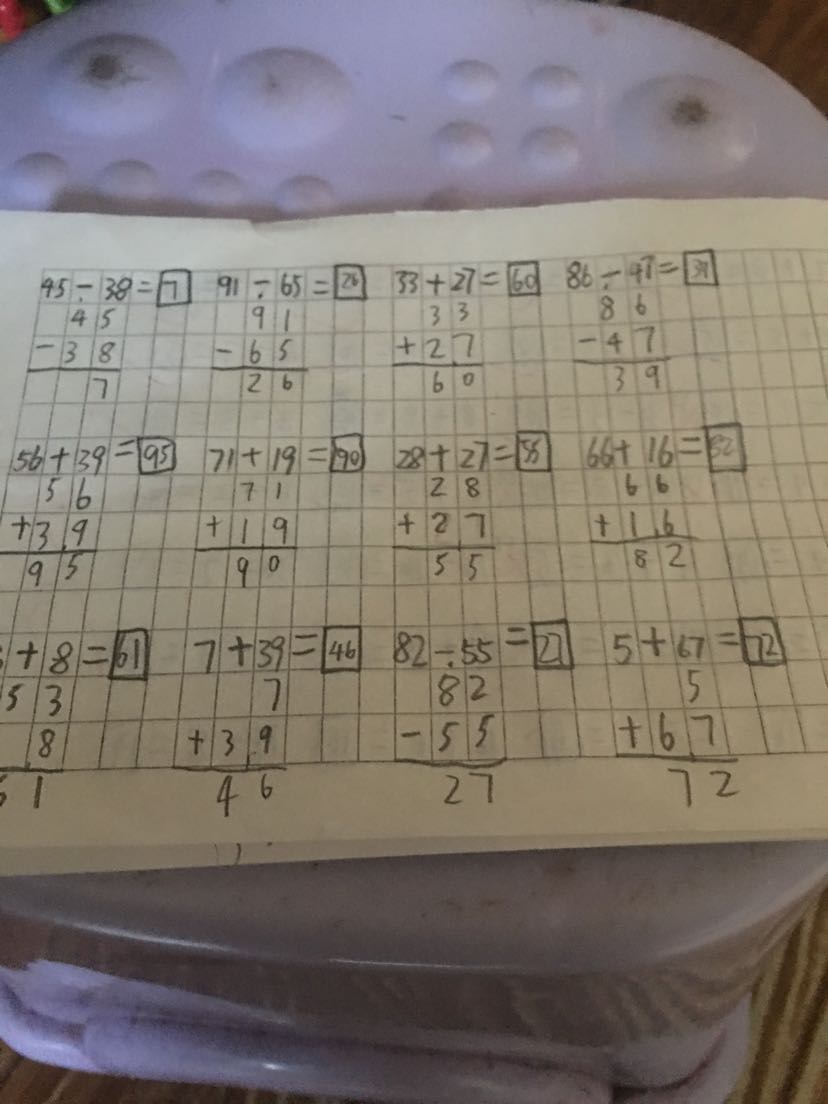 45 - 38 = 7 91 - 65 = 26 33 + 27 = 60 86 - 47 = 39
45 91 33 86
- 38 - 65 + 27 - 47
7 26 60 39
56 + 39 = 95 71 + 19 = 90 28 + 27 = 55 66 + 16 = 82
56 71 28 66
+ 39 + 19 + 27 + 16
95 90 55 82
+ 8 = 61 7 + 39 = 46 82 - 55 = 27 5 + 67 = 72
53 7 82 5
8 + 39 - 55 + 67
61 46 27 72